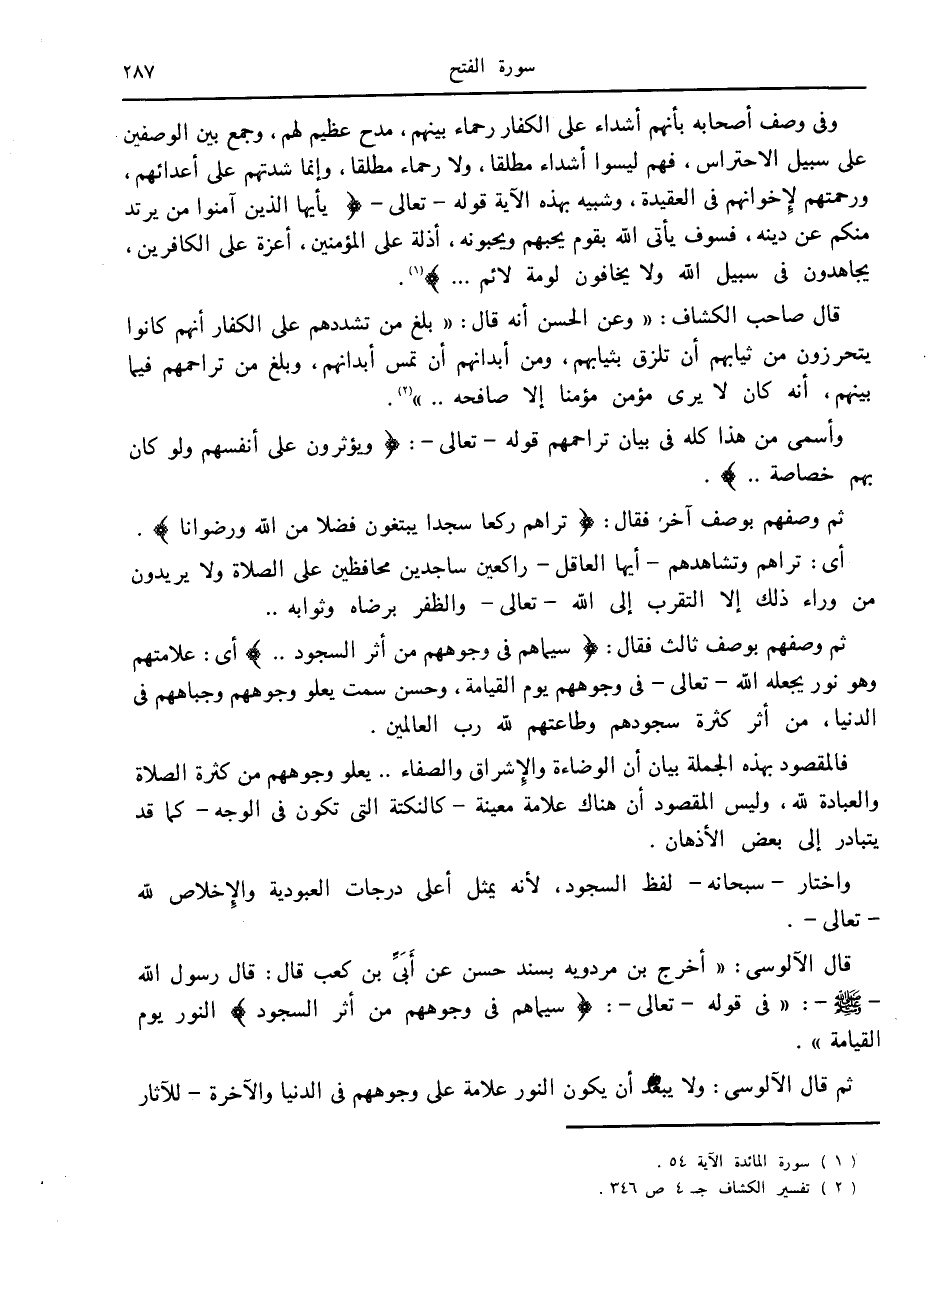 سورة الفتح ٢٨٧
وفى وصف أصحابه بأنهم أشداء على الكفار رحماء بينهم، مدح عظيم لهم، وجمع بين الوصفين
على سبيل الاحتراس، فهم ليسوا أشداء مطلقا، ولا رحماء مطلقا، وإنما شدتهم على أعدائهم،
ورحمتهم لإخوانهم فى العقيدة، وشبيه بهذه الآية قوله - تعالى - ﴿ يأيها الذين آمنوا من يرتد
منكم عن دينه، فسوف يأتى الله بقوم يحبهم ويحبونه، أذلة على المؤمنين، أعزة على الكافرين،
يجاهدون فى سبيل الله ولا يخافون لومة لائم ... ﴾(١).
قال صاحب الكشاف: « وعن الحسن أنه قال: « بلغ من تشددهم على الكفار أنهم كانوا
يتحرزون من ثيابهم أن تلزق بثيابهم، ومن أبدانهم أن تمس أبدانهم، وبلغ من تراحمهم فيما
بينهم، أنه كان لا يرى مؤمن مؤمنا إلا صافحه .. »(٢).
وأسمى من هذا كله فى بيان تراحمهم قوله - تعالى -: ﴿ ويؤثرون على أنفسهم ولو كان
بهم خصاصة .. ﴾ .
ثم وصفهم بوصف آخر فقال: ﴿ تراهم ركعا سجدا يبتغون فضلا من الله ورضوانا ﴾ .
أى: تراهم وتشاهدهم - أيها العاقل - راكعين ساجدين محافظين على الصلاة ولا يريدون
من وراء ذلك إلا التقرب إلى الله - تعالى - والظفر برضاه وثوابه ..
ثم وصفهم بوصف ثالث فقال: ﴿ سيماهم فى وجوههم من أثر السجود .. ﴾ أى: علامتهم
وهو نور يجعله الله - تعالى - فى وجوههم يوم القيامة، وحسن سمت يعلو وجوههم وجباههم فى
الدنيا، من أثر كثرة سجودهم وطاعتهم لله رب العالمين .
فالمقصود بهذه الجملة بيان أن الوضاءة والإشراق والصفاء .. يعلو وجوههم من كثرة الصلاة
والعبادة لله، وليس المقصود أن هناك علامة معينة - كالنكتة التى تكون فى الوجه - كما قد
يتبادر إلى بعض الأذهان .
واختار - سبحانه - لفظ السجود، لأنه يمثل أعلى درجات العبودية والإخلاص لله
- تعالى - .
قال الآلوسى: « أخرج بن مردويه بسند حسن عن أُبَىِّ بن كعب قال: قال رسول الله
- ﷺ -: « فى قوله - تعالى -: ﴿ سيماهم فى وجوههم من أثر السجود ﴾ النور يوم
القيامة » .
ثم قال الآلوسى: ولا يبعد أن يكون النور علامة على وجوههم فى الدنيا والآخرة - للآثار
( ١ ) سورة المائدة الآية ٥٤ .
( ٢ ) تفسير الكشاف جـ ٤ ص ٣٤٦ .